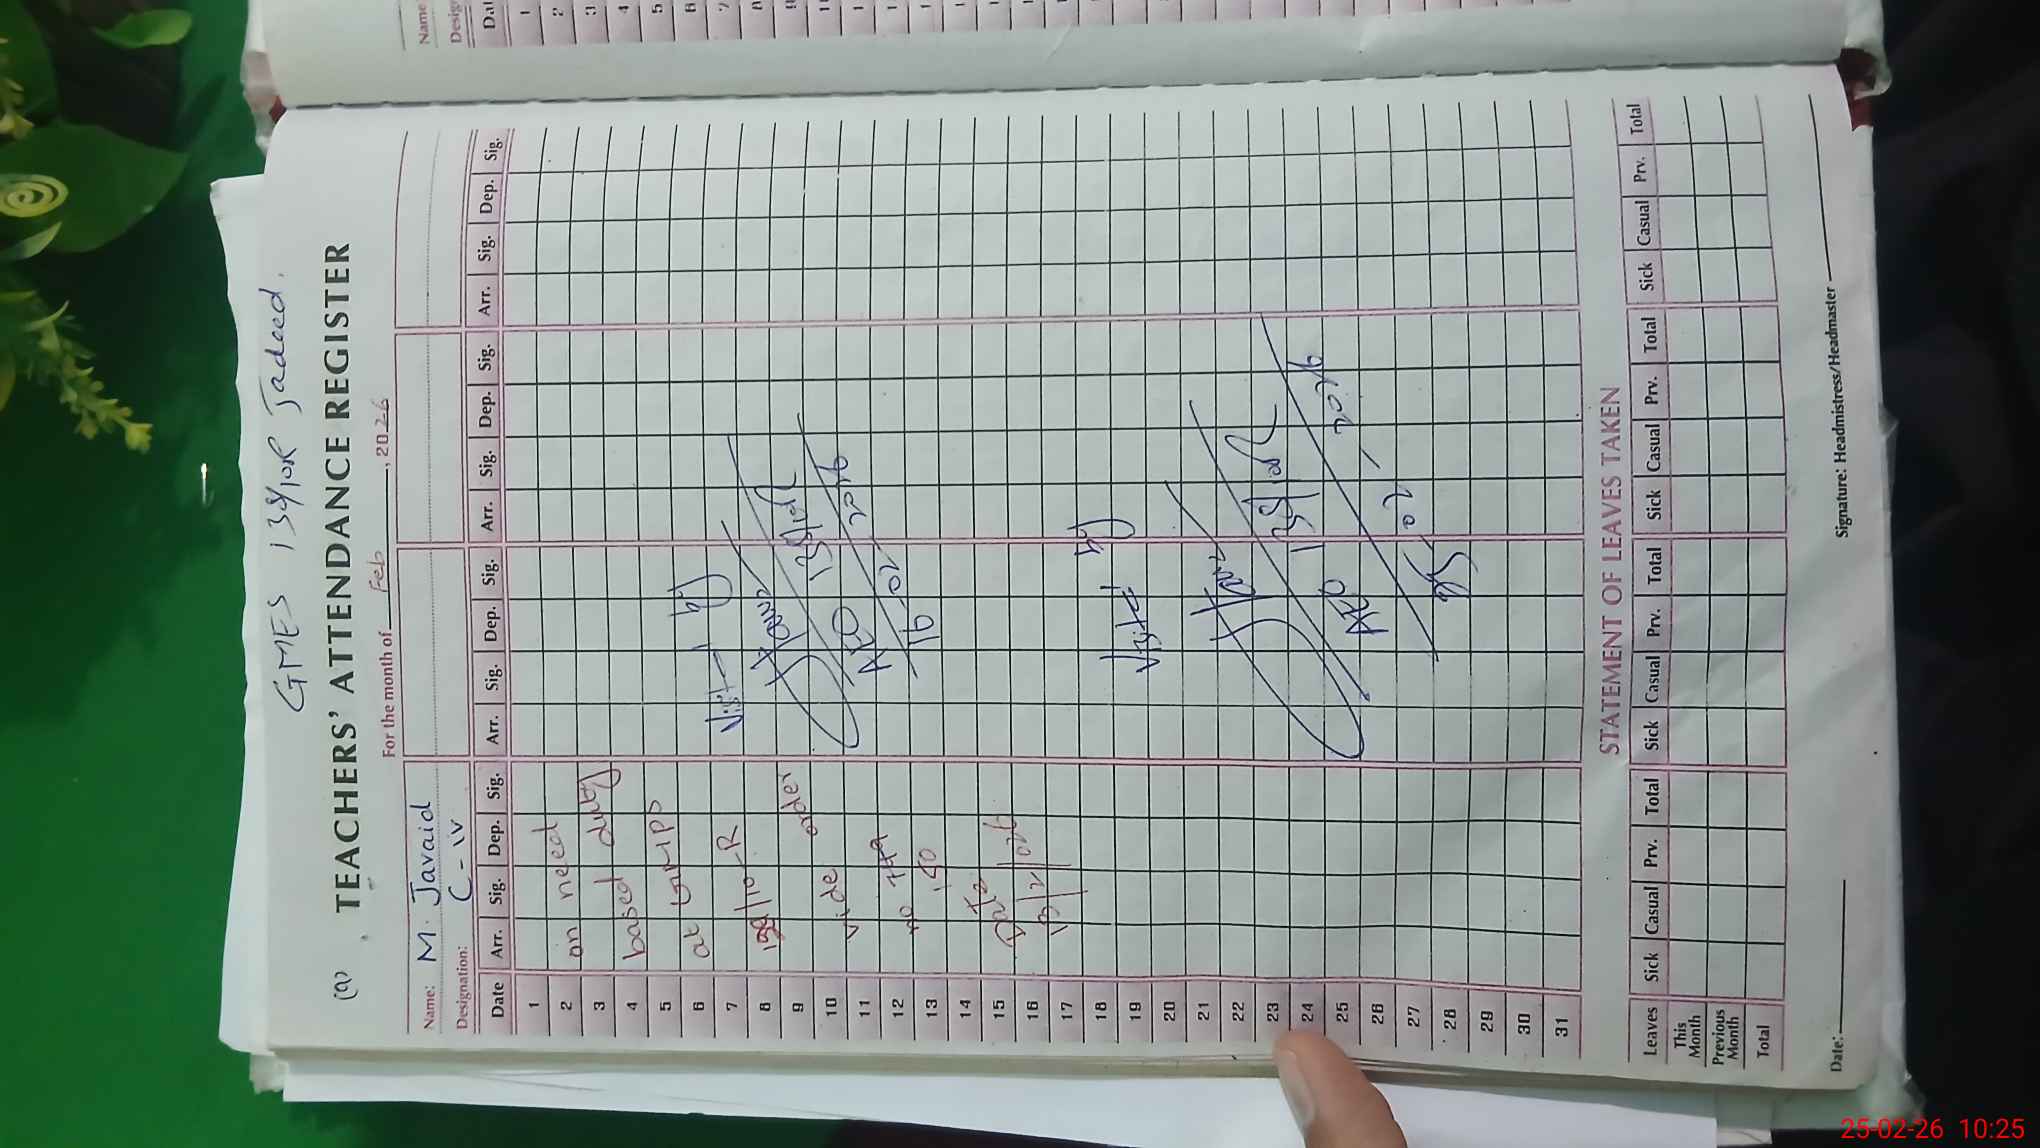 GMES 138/10R Jadeed.
(9) TEACHERS' ATTENDANCE REGISTER
For the month of Feb, 2026
Name: M. Javaid
Designation: C-iv
Date Arr. Sig. Dep. Sig. Arr. Sig. Dep. Sig. Arr. Sig. Dep. Sig. Arr. Sig. Dep. Sig.
1
2 on need
3 based duty
4
5 at
6
7 138/10-R
8
9 vide order
10
11 no
12
13 150
14
15 Dated
16 13/2/026
17
18
19
20
21
22
23
24
25
26
27
28
29
30
31
Visited by
AEO 138/10R
16-02-2026
Visited by
AEO 138/10R
25/02/2026
STATEMENT OF LEAVES TAKEN
Leaves Sick Casual Prv. Total Sick Casual Prv. Total Sick Casual Prv. Total Sick Casual Prv. Total
This Month
Previous Month
Total
Date: Signature: Headmistress/Headmaster
Name
Desig
Dat
1
2
3
4
5
6
7
8
9
25-02-26 10:25